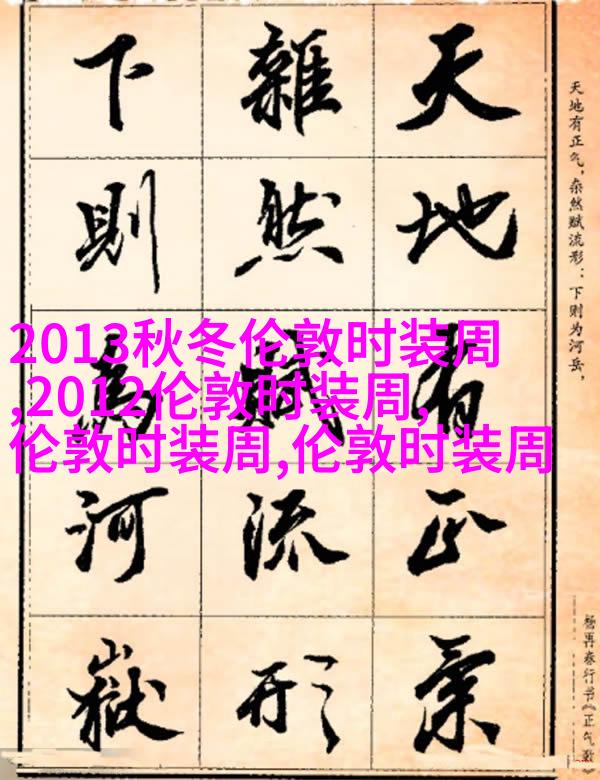 天地有正氣
雜然賦流形
下則為河嶽
天地有正气，杂然赋流形：下则为河岳，
杨再春行书《正气歌》
2013秋冬伦敦时装周
,2012伦敦时装周,
伦敦时装周,伦敦时装周